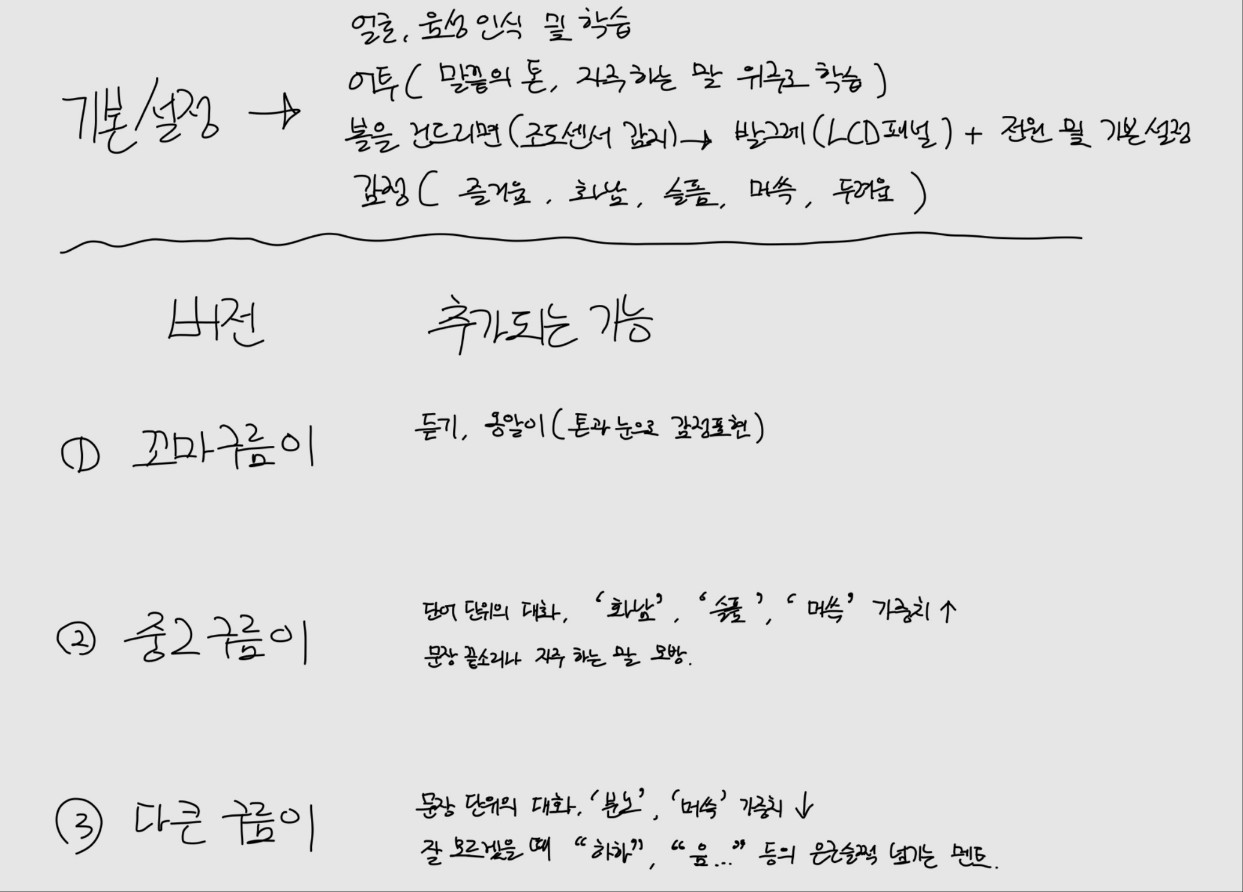 얼굴, 음성 인식 및 학습
기본/설정 → 어투( 말끝의 톤, 자주 하는 말 위주로 학습 )
볼을 건드리면(조도센서 감지)→ 발그레(LCD패널) + 전원 및 기본설정
감정( 즐거움, 화남, 슬픔, 머쓱, 두려움 )
버전 추가되는 기능
① 꼬마구름이 듣기, 옹알이(톤과 눈으로 감정표현)
② 중2구름이 단어 단위의 대화, ‘화남’, ‘슬픔’, ‘머쓱’ 가중치 ↑
문장 끝소리나 자주 하는 말 모방.
③ 다큰 구름이 문장 단위의 대화, ‘분노’, ‘머쓱’ 가중치 ↓
잘 모르겠을 때 “하하”, “음...” 등의 은근슬쩍 넘기는 멘트.